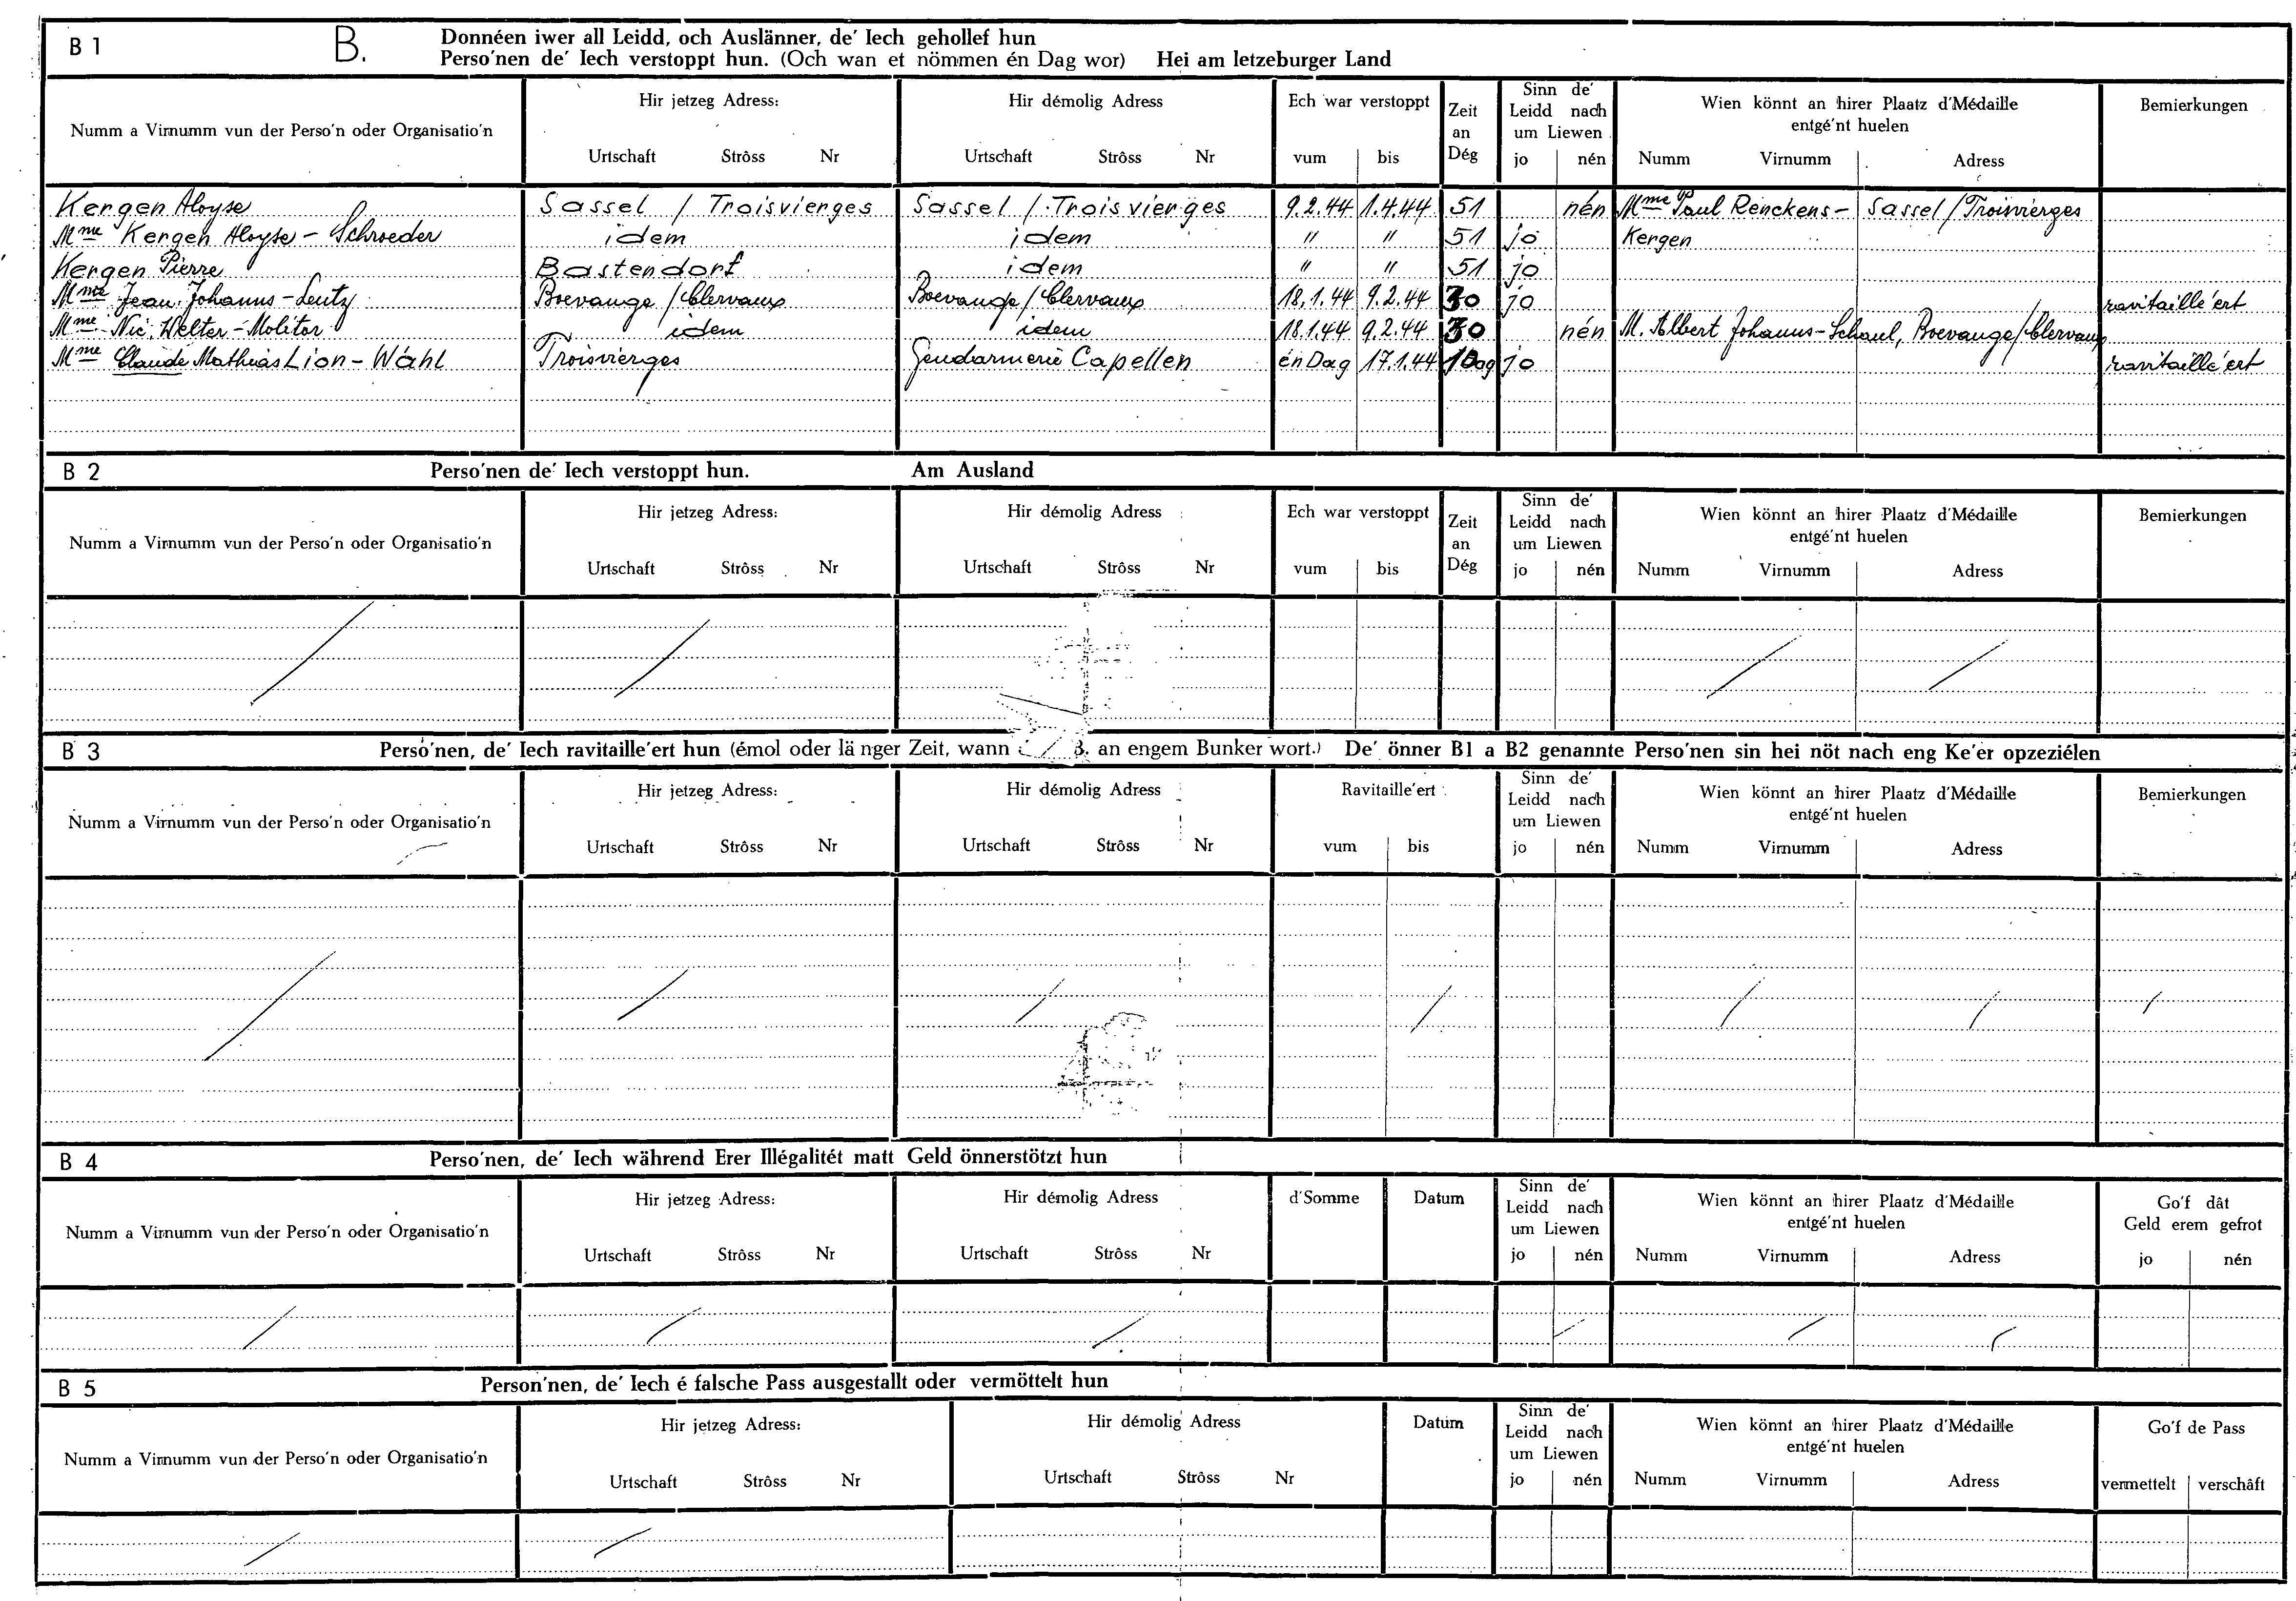 B 1 B. Donnéen iwer all Leidd, och Auslänner, de' Iech gehollef hun
Perso'nen de' Iech verstoppt hun. (Och wan et nömmen én Dag wor) Hei am letzeburger Land
Numm a Virnumm vun der Perso'n oder Organisatio'n
Hir jetzeg Adress:
Urtschaft Strôss Nr
Hir démolig Adress
Urtschaft Strôss Nr
Ech war verstoppt
vum bis
Zeit
an
Dég
Sinn de'
Leidd nach
um Liewen
jo nén
Wien könnt an hirer Plaatz d'Médaille
entgé'nt huelen
Numm Virnumm Adress
Bemierkungen
Kergen Aloyse Sassel / Troisvierges Sassel / Troisvierges 9.2.44 1.4.44 51 nén Mme Paul Renckens- Sassel/Troisvierges
Mme Kergen Aloyse - Schroeder idem idem " " 51 jo Kergen
Kergen Pierre Bastendorf idem " " 51 jo
Mme Jean Johanns - Leutz Boevange/Clervaux Boevange/Clervaux 18.1.44 9.2.44 30 jo ravitaillé'ert
Mme Nic. Welter - Molitor idem idem 18.1.44 9.2.44 30 nén M. Albert Johanns-Schaul, Boevange/Clervaux
Mme Claude Mathias Lion - Wahl Troisvierges Gendarmerie Capellen én Dag 17.1.44 1Dag jo ravitaillé'ert
B 2 Perso'nen de' Iech verstoppt hun. Am Ausland
Numm a Virnumm vun der Perso'n oder Organisatio'n
Hir jetzeg Adress:
Urtschaft Strôss Nr
Hir démolig Adress
Urtschaft Strôss Nr
Ech war verstoppt
vum bis
Zeit
an
Dég
Sinn de'
Leidd nach
um Liewen
jo nén
Wien könnt an hirer Plaatz d'Médaille
entgé'nt huelen
Numm Virnumm Adress
Bemierkungen
B 3 Perso'nen, de' Iech ravitaille'ert hun (émol oder länger Zeit, wann B. an engem Bunker wort.) De' önner B1 a B2 genannte Perso'nen sin hei nöt nach eng Ke'er opzeziélen
Numm a Virnumm vun der Perso'n oder Organisatio'n
Hir jetzeg Adress:
Urtschaft Strôss Nr
Hir démolig Adress
Urtschaft Strôss Nr
Ravitaille'ert
vum bis
Sinn de'
Leidd nach
um Liewen
jo nén
Wien könnt an hirer Plaatz d'Médaille
entgé'nt huelen
Numm Virnumm Adress
Bemierkungen
B 4 Perso'nen, de' Iech während Erer Illégalitét matt Geld önnerstötzt hun
Numm a Virnumm vun der Perso'n oder Organisatio'n
Hir jetzeg Adress:
Urtschaft Strôss Nr
Hir démolig Adress
Urtschaft Strôss Nr
d'Somme
Datum
Sinn de'
Leidd nach
um Liewen
jo nén
Wien könnt an hirer Plaatz d'Médaille
entgé'nt huelen
Numm Virnumm Adress
Go'f dât
Geld erem gefrot
jo nén
B 5 Person'nen, de' Iech é falsche Pass ausgestallt oder vermöttelt hun
Numm a Virnumm vun der Perso'n oder Organisatio'n
Hir jetzeg Adress:
Urtschaft Strôss Nr
Hir démolig Adress
Urtschaft Strôss Nr
Datum
Sinn de'
Leidd nach
um Liewen
jo nén
Wien könnt an hirer Plaatz d'Médaille
entgé'nt huelen
Numm Virnumm Adress
Go'f de Pass
vermettelt verschâft